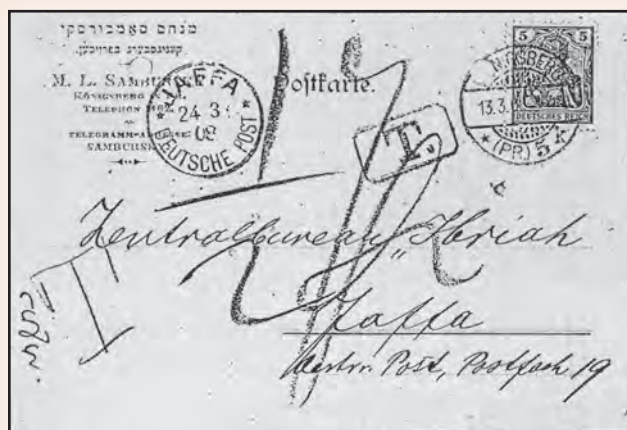 מנחם סאמבורסקי
קעניגסבערג בפרייסן.
M. L. SAMBURSKI
KÖNIGSBERG
TELEPHON
TELEGRAMM-ADRESSE:
SAMBURSKI
JAFFA
24 3
08
DEUTSCHE POST
Postkarte.
5 5
DEUTSCHES REICH
KÖNIGSBERG
13.3.
(PR.) 5 k
T.
Zentralbureau „Ibriah
Jaffa
Oestrr. Post, Postfach 19